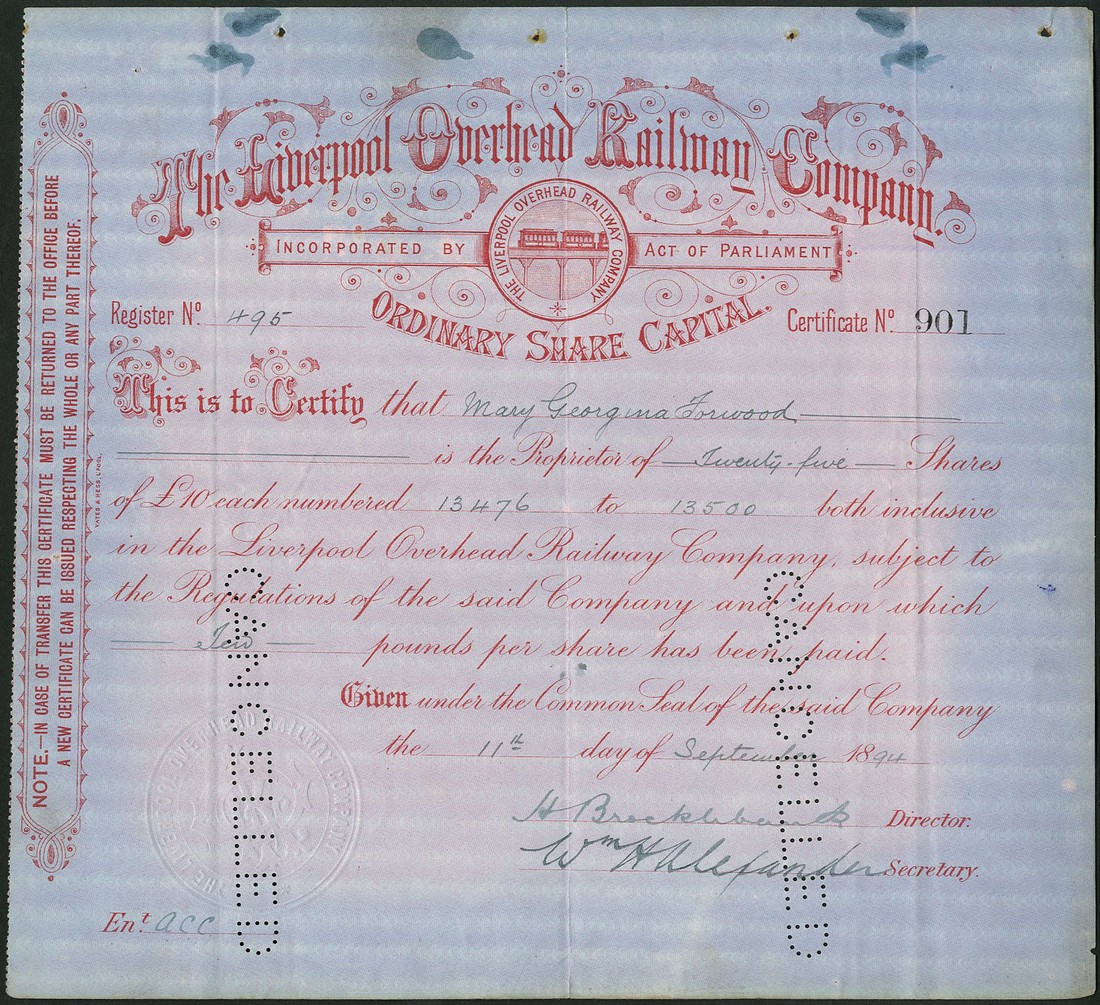 The Liverpool Overhead Railway Company.
INCORPORATED BY ACT OF PARLIAMENT
THE LIVERPOOL OVERHEAD RAILWAY COMPANY
ORDINARY SHARE CAPITAL.
Register No. 495 Certificate No. 901
This is to Certify that Mary Georgina Forwood
is the Proprietor of Twenty-five Shares
of £10 each numbered 13476 to 13500 both inclusive
in the Liverpool Overhead Railway Company, subject to
the Regulations of the said Company and upon which
Ten pounds per share has been paid.
Given under the Common Seal of the said Company
the 11th day of September 1894
H Brocklebank Director.
Wm H Alexander Secretary.
Ent. acc
NOTE.—IN CASE OF TRANSFER THIS CERTIFICATE MUST BE RETURNED TO THE OFFICE BEFORE
A NEW CERTIFICATE CAN BE ISSUED RESPECTING THE WHOLE OR ANY PART THEREOF.
YATES & HESS, L'POOL.
THE LIVERPOOL OVERHEAD RAILWAY COMPANY
CANCELLED
CANCELLED